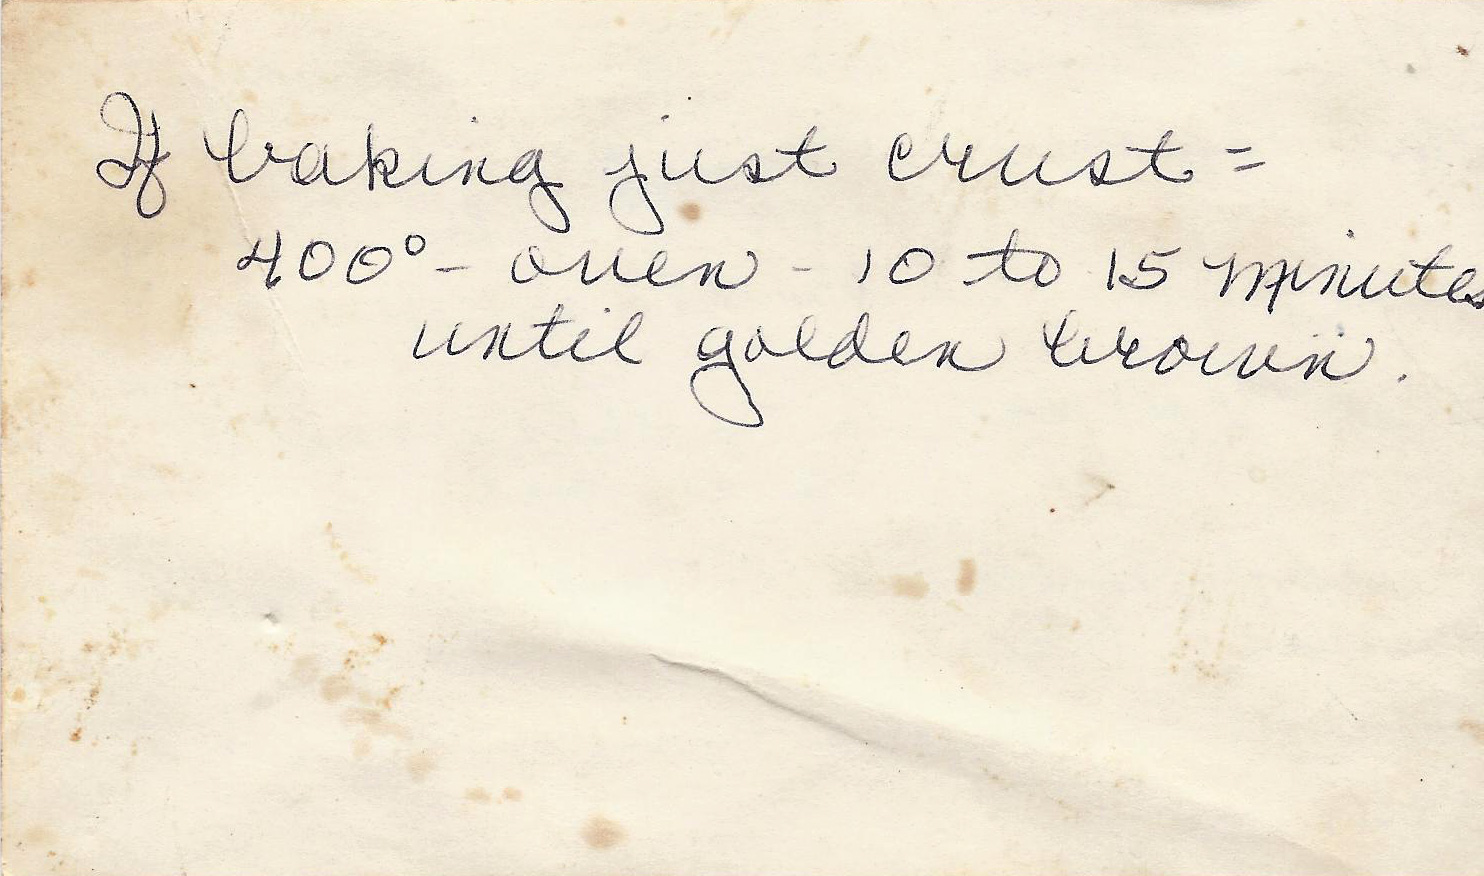 If baking just crust =
400° - oven - 10 to 15 minutes
until golden brown.